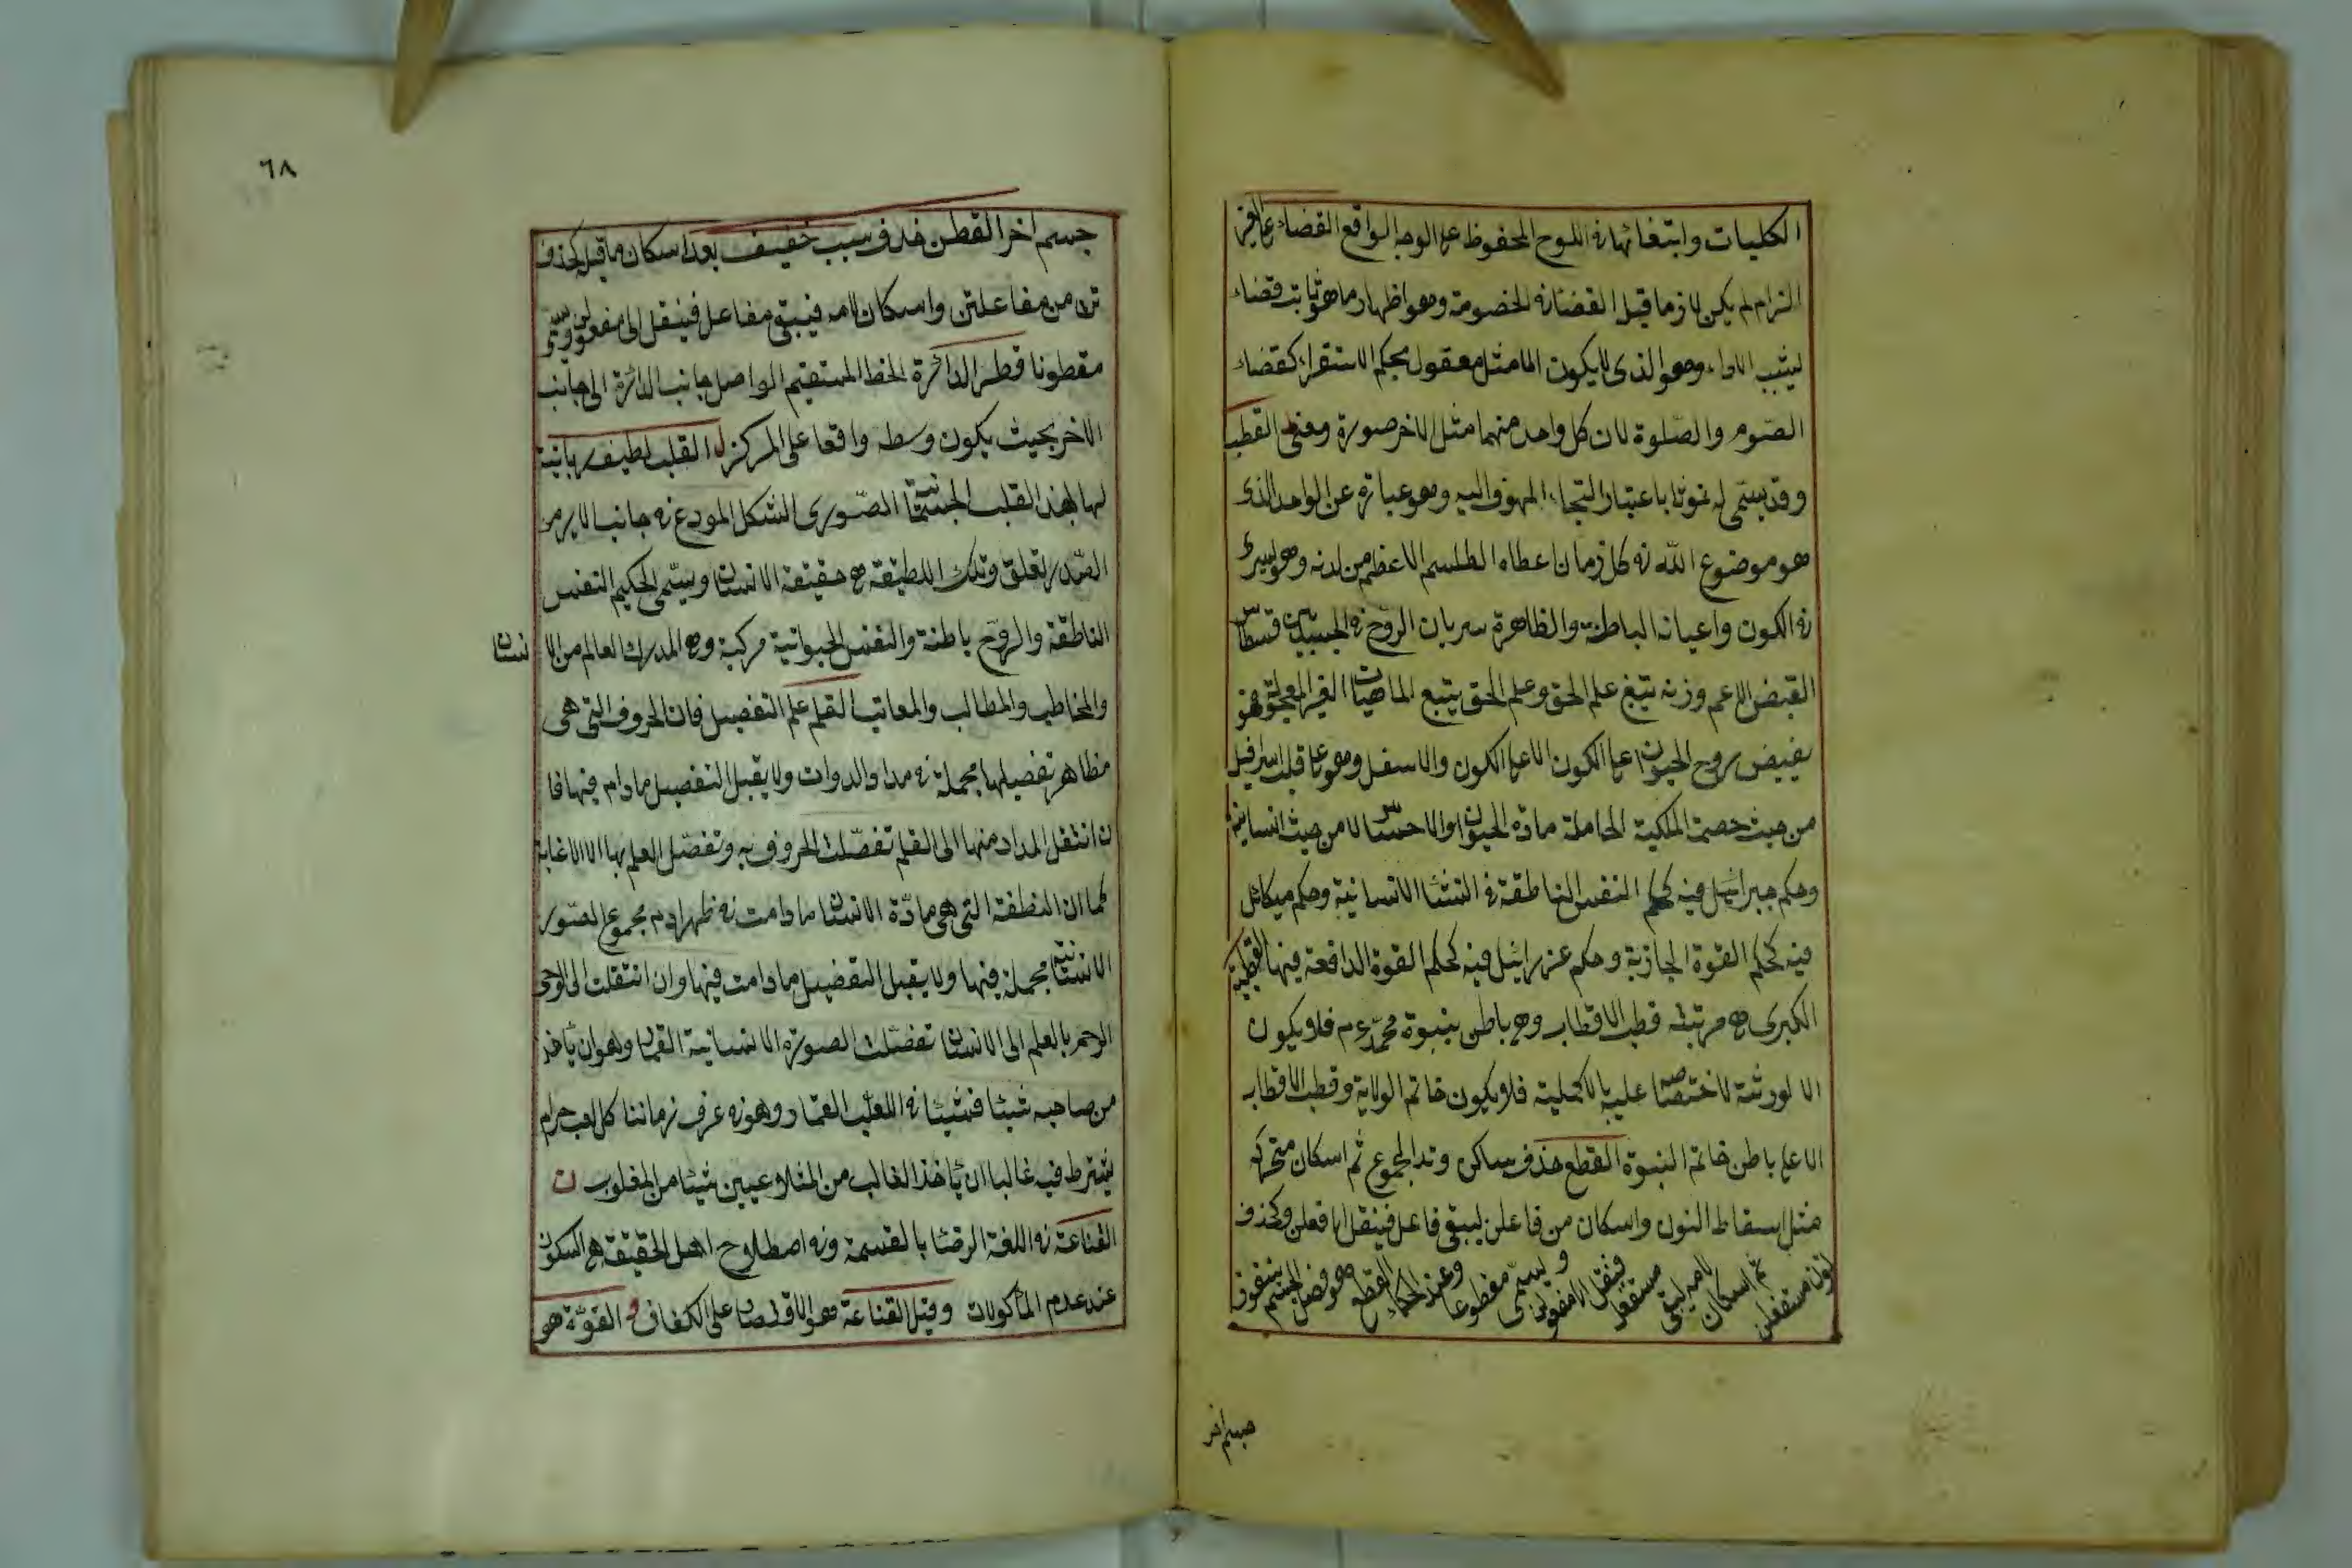 الكليات وابتغائها في اللوح المحفوظ على الوجه الواقع القضاء على الغير
الزام لم يكن لازما قبل القضا في الخصومة وهو اظهار ما هو ثابت قضاء
يشبه الاداء وهو الذي لا يكون الا مثل معقول بحكم الاستقراء كقضاء
الصوم والصلوة لان كل واحد منهما مثل الاخر صورة ومعنى القطب
وقد يسمى له غوثا باعتبار التجاء الملهوف اليه وهو عبارة عن الواحد الذي
هو موضوع الله في كل زمان اعطاه الطلسم الاعظم من لدنه وهو يسرى
في الكون واعيانه الباطنة والظاهرة سريان الروح في الجسد بيده قسطاس
الفيض الاعم وزنه يتبع علم الحق وعلم الحق يتبع الماهيات الغير المجعولة فهو
يفيض روح الحيوة على الكون الاعلى الكون والاسفل وهو على قلب اسرافيل
من حيث حصته الملكية الحاملة مادة الحيوة والاحساس لا من حيث انسانيته
وحكم جبرائيل فيه كحكم النفس الناطقة في النشأ الانسانية وحكم ميكائل
فيه كحكم القوة الجاذبة وحكم عزرائيل فيه كحكم القوة الدافعة فيها القطبية
الكبرى هي مرتبة قطب الاقطاب وهو باطن نبوة محمد عم فلا يكون
الا لورثته لاختصاصه عليه بالاكملية فلا يكون خاتم الولاية وقطب الاقطاب
الا على باطن خاتم النبوة القطع حذف ساكن وتد المجموع ثم اسكان متحركه
مثل اسقاط النون واسكان من فاعلن ليبقى فاعل فينقل الى فعلن وكحذف
نون مستفعلن ثم اسكان لامه ليبقى مستفعل فينقل الى مفعولن ويسمى مقطوعا وعند الحكماء القطع هو فصل الجسم بنفوذ
جسم اخر
٦٨
جسم اخر القطن حذف سبب خفيف بعد اسكان ما قبله كحذف
تن من مفاعلتن واسكان لامه فيبقى مفاعل فينقل الى مفعولن ويسمى
مقطونا قطر الدائرة الخط المستقيم الواصل جانب الدائرة الى جانب
الاخر بحيث يكون وسطه واقعا على المركز ل القلب لطيفة ربانية
لها بهذا القلب الجسماني الصنوبرى الشكل المودع في جانب الايسر من
الصدر تعلق وتلك اللطيفة هي حقيقة الانسان ويسمى الحكيم النفس
الناطقة والروح باطنة والنفس الحيوانية مركبة وهي المدرك العالم من الا نسان
والمخاطب والمطالب والمعاتب القلم علم التفصيل فان الحروف التي هي
مظاهر تفصيلها مجملة في مداد الدوات ولا يقبل التفصيل ما دام فيها فا
ن انتقل المداد منها الى القلم تفصلت الحروف به وتفصل العلم بها الا لاغاية
كما ان النطفة التي هي مادة الانسان ما دامت في ظهر ادم مجموع الصور
الانسانية مجملة فيها ولا يقبل التفصيل ما دامت فيها وان انتقلت الى لوح
الرحم بالعلم الى الانسان تفصلت الصورة الانسانية القمار وهو ان يأخذ
من صاحبه شيئا فشيئا في اللعب القمار وهو في عرف زماننا كل لعب حرام
يشترط فيه غالبا ان يأخذ الغالب من المتلاعبين شيئا من المغلوب ن
القناعة في اللغة الرضا بالقسمة وفي اصطلاح اهل الحقيقة هي السكون
عند عدم المألوفات وقيل القناعة هو الاقتصار على الكفاف و القوة هو